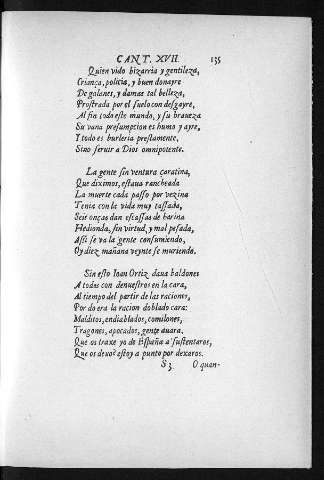 CANT. XVII. 135
Quien vido bizarria y gentileza,
Criança, policia, y buen donayre
De galanes, y damas tal belleza,
Prostrada por el suelo con desgayre,
Al fin todo este mundo, y su braueza
Su vana presumpcion es humo y ayre,
I todo es burleria prestamente,
Sino seruir a Dios omnipotente.
La gente sin ventura çaratina,
Que diximos, estaua rancheada
La muerte cada passo por vezina
Tenia con la vida muy tassada,
Seis onças dan escassas de harina
Hedionda, sin virtud, y mal pesada,
Assi se va la gente consumiendo,
Oy diez mañana veynte se muriendo.
Sin esto Ioan Ortiz daua baldones
A todos con denuestros en la cara,
Al tiempo del partir de las raciones,
Por do era la racion doblado cara:
Malditos, endiablados, comilones,
Tragones, apocados, gente auara,
Que os traxe yo de España a sustentaros,
Que os deuo? estoy a punto por dexaros.
S 3 O quan-